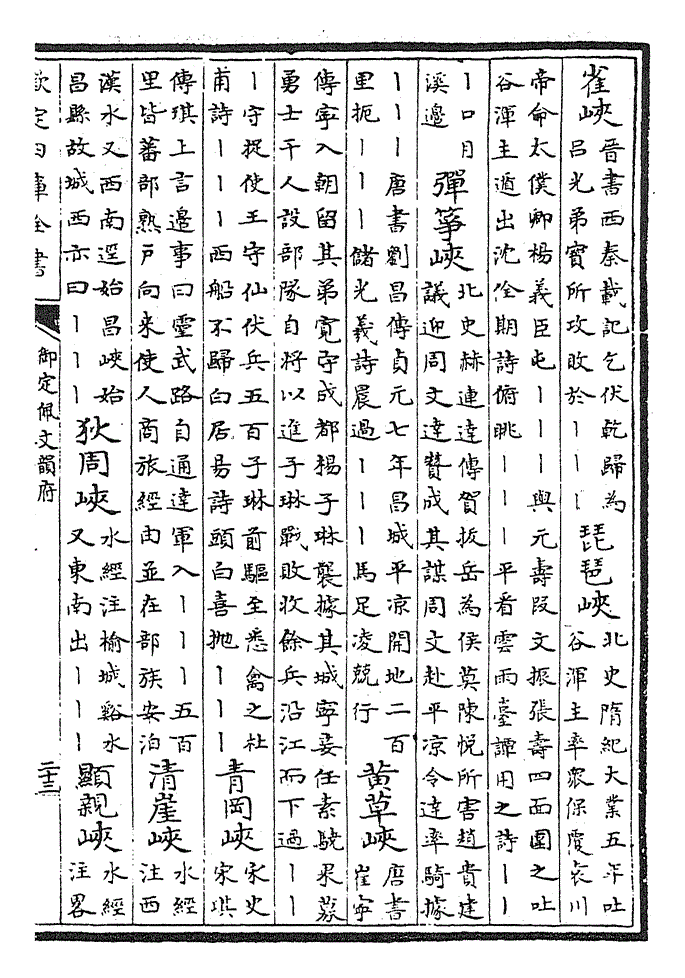 雀峽晉書西秦載記乞伏乾歸為
吕光弟寶所攻敗於丨丨丨琵琶峽北史隋紀大業五年吐
谷渾主率衆保覆袁川
帝命太僕卿楊義臣屯丨丨丨與元壽段文振張壽四面圍之吐
谷渾主遁出沈佺期詩俯眺丨丨丨平看雲雨臺譚用之詩丨丨
丨口月
溪邊彈箏峽北史赫連達傳賀拔岳為侯莫陳悦所害趙貴建
議迎周文達贊成其謀周文赴平凉令達率騎據
丨丨丨唐書劉昌傳貞元七年昌城平凉開地二百
里扼丨丨丨儲光義詩晨過丨丨丨馬足凌兢行黄草峽唐書
崔寧
傳寧入朝留其弟寛守成都楊子琳襲據其城寧妾任素驍果募
勇士千人設部隊自將以進子琳戰敗收餘兵沿江而下過丨丨
丨守捉使王守仙伏兵五百子琳前驅至悉禽之杜
甫詩丨丨丨西船不歸白居易詩頭白喜抛丨丨丨青岡峽宋史
宋琪
傳琪上言邊事曰靈武路自通達軍入丨丨丨五百
里皆蕃部熟户向來使人商旅經由並在部族安泊清崖峽水經
注西
漢水又西南逕始昌峽始
昌縣故城西亦曰丨丨丨狄周峽水經注榆城谿水
又東南出丨丨丨顯親峽水經
注畧
欽定四庫全書
御定佩文韻府
二十三